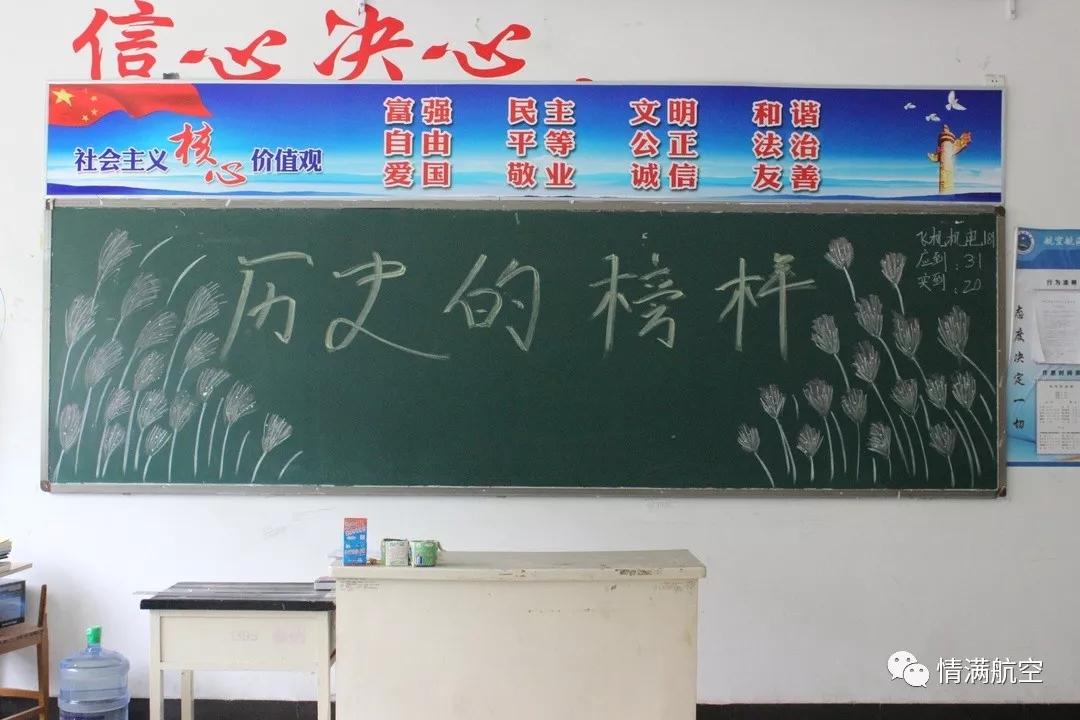 信心决心
社会主义核心价值观
富强 民主 文明 和谐
自由 平等 公正 法治
爱国 敬业 诚信 友善
历史的榜样
飞机机电181
应到:31
实到:20
行为准则
态度决定一切
作息时间表
情满航空